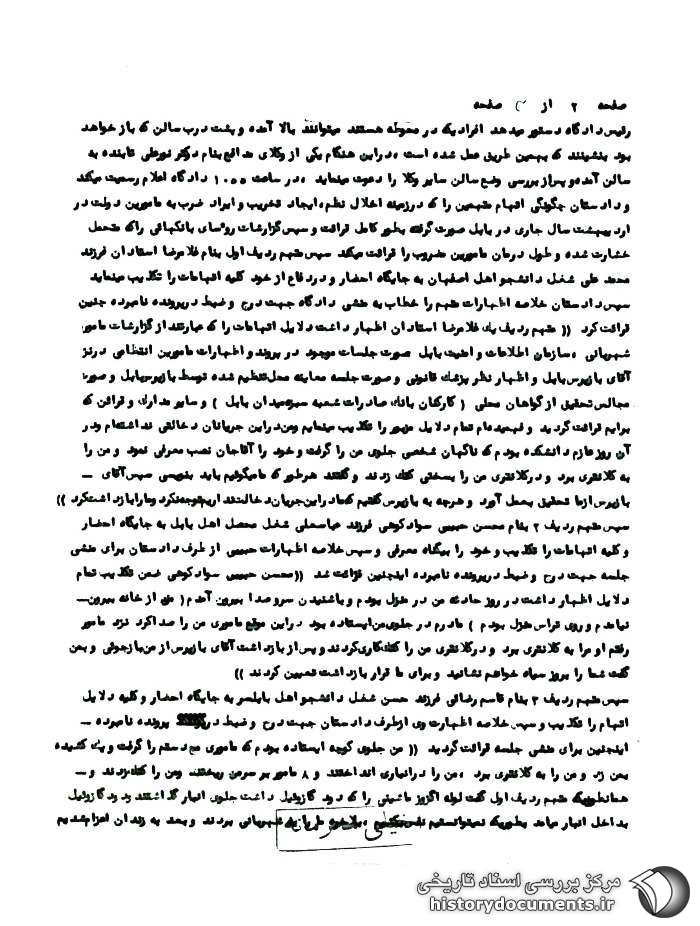 صفحه ۲ از صفحه
رئیس دادگاه دستور میدهد افرادیکه در محوطه هستند میتوانند بالا آمده و پشت درب سالن که باز خواهد
بود بنشینند که بهمین طریق عمل شده است، در این هنگام یکی از وکلای مدافع بنام دکتر نورعلی تابنده به
سالن آمده و پس از بررسی وضع سالن سایر وکلا را دعوت مینماید، در ساعت ۱۰۵۵ دادگاه اعلام رسمیت میکند
و دادستان چگونگی اتهام متهمین را که در زمینه اخلال نظم، ایجاد تخریب و ایراد ضرب به مامورین دولت در
اردیبهشت سال جاری در بابل صورت گرفته بطور کامل قرائت و سپس گزارشات روسای بانکهائی را که متحمل
خسارت شده و طول درمان مامورین مضروب را قرائت میکند سپس متهم ردیف اول بنام غلامرضا استادان فرزند
محمد علی شغل دانشجو اهل اصفهان به جایگاه احضار و در دفاع از خود کلیه اتهامات را تکذیب مینماید
سپس دادستان خلاصه اظهارات متهم را خطاب به منشی دادگاه جهت درج و ضبط در پرونده نامبرده چنین
قرائت کرد (( متهم ردیف یک غلامرضا استادان اظهار داشت دلایل اتهامات را که عبارتند از گزارشات مامور
شهربانی، سازمان اطلاعات و امنیت بابل صورت جلسات موجود در پرونده و اظهارات مامورین انتظامی در نزد
آقای بازپرس بابل و اظهار نظر پزشک قانونی و صورت جلسه معاینه محل تنظیم شده توسط بازپرس بابل و صورت
مجالس تحقیق از گواهان محلی ( کارکنان بانک صادرات شعبه سبزه میدان بابل ) و سایر مدارک و قرائن که
برایم قرائت گردید و فهمیده ام تمام دلایل مزبور را تکذیب مینمایم و من در این جریانات دخالتی نداشته ام و در
آن روز عازم دانشکده بودم که ناگهان شخصی جلوی من را گرفت و خود را آقاجان نصب معرفی نمود و من را
به کلانتری برد و در کلانتری من را بسختی کتک زدند و گفتند هر طور که ما میگوئیم باید بنویسی سپس آقای ــ
بازپرس از ما تحقیق بعمل آورد و هرچه به بازپرس گفتیم که ما در این جریان دخالت نداریم توجه نکرد و ما را بازداشت کرد ))
سپس متهم ردیف ۲ بنام محسن حبیبی سوادکوهی فرزند عباسعلی شغل محصل اهل بابل به جایگاه احضار
و کلیه اتهامات را تکذیب و خود را بیگناه معرفی و سپس خلاصه اظهارات حبیبی از طرف دادستان برای منشی
جلسه جهت درج و ضبط در پرونده نامبرده اینچنین قرائت شد (( محسن حبیبی سوادکوهی ضمن تکذیب تمام
دلایل اظهار داشت در روز حادثه من در منزل بودم و باشنیدن سر و صدا بیرون آمدم ( من از خانه بیرون ــ
نیامدم و روی تراس منزل بودم ) مادرم در جلوی من ایستاده بود در این موقع ماموری من را صدا کرد نزد مامور
رفتم او مرا به کلانتری برد و در کلانتری من را کتک کاری کردند و پس از بازداشت آقای بازپرس از من بازجوئی و بمن
گفت شما را بروز سیاه خواهم نشانید و برای ما قرار بازداشت تعیین کردند ))
سپس متهم ردیف ۳ بنام قاسم رضائی فرزند حسن شغل دانشجو اهل بابلسر به جایگاه احضار و کلیه دلایل
اتهام را تکذیب و سپس خلاصه اظهارت وی از طرف دادستان جهت درج و ضبط در پرونده نامبرده ــ
اینچنین برای منشی جلسه قرائت گردید (( من جلوی کوچه ایستاده بودم که ماموری مچ دستم را گرفت و یک کشیده
بمن زد و من را به کلانتری برد، من را در انباری انداختند و ۸ مامور بر سر من ریختند و من را کتک زدند و ــ
همانطوریکه متهم ردیف اول گفت لوله اگزوز ماشینی را که دود گازوئیل داشت جلوی انبار گذاشتند و دود گازوئیل
بداخل انبار میامد بطوریکه نمیتوانستیم نفس بکشیم، بلاخره ما را به شهربانی بردند و بعد به زندان اعزام شدیم
مرکز بررسی اسناد تاریخی
historydocuments.ir